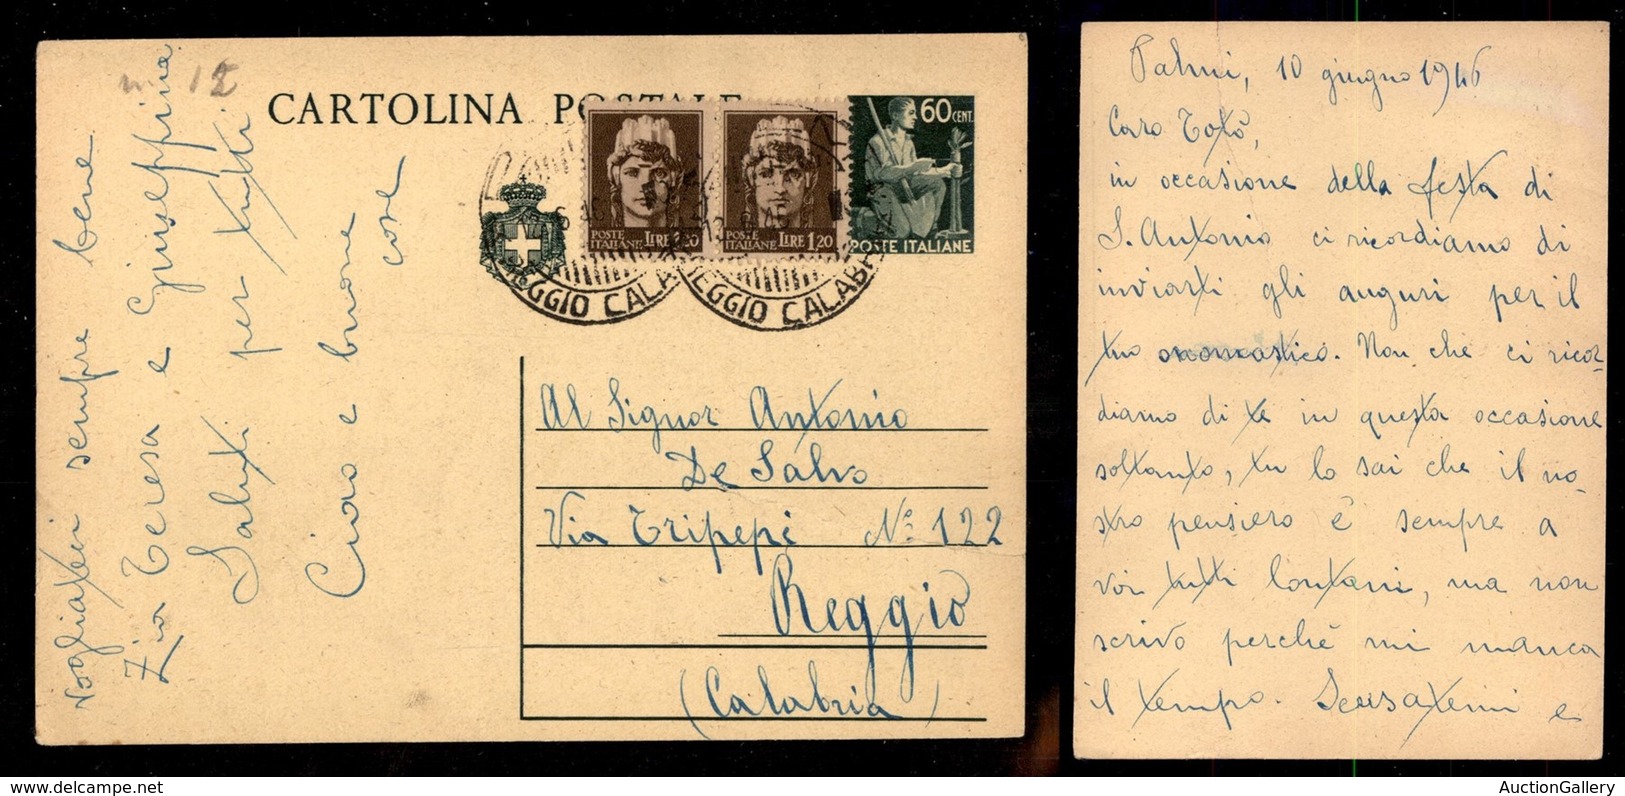 n. 12
CARTOLINA POSTALE
60 CENT.
POSTE ITALIANE LIRE 1,20
POSTE ITALIANE LIRE 1,20
POSTE ITALIANE
REGGIO CALAB
REGGIO CALAB
vogliatevi sempre bene
Zia Teresa e Giuseppina
Saluti per tutti
Ciao e buone
cose
Al Signor Antonio
De Salvo
Via Tripepi No. 122
Reggio
(Calabria)
Palmi, 10 giugno 1946
Caro Totò,
in occasione della festa di
S. Antonio ci ricordiamo di
inviarti gli auguri per il
tuo onomastico. Non che ci ricor-
diamo di te in questa occasione
soltanto, tu lo sai che il no-
stro pensiero è sempre a
voi tutti lontani, ma non
scrivo perchè mi manca
il tempo. Scusatemi e
AuctionGallery